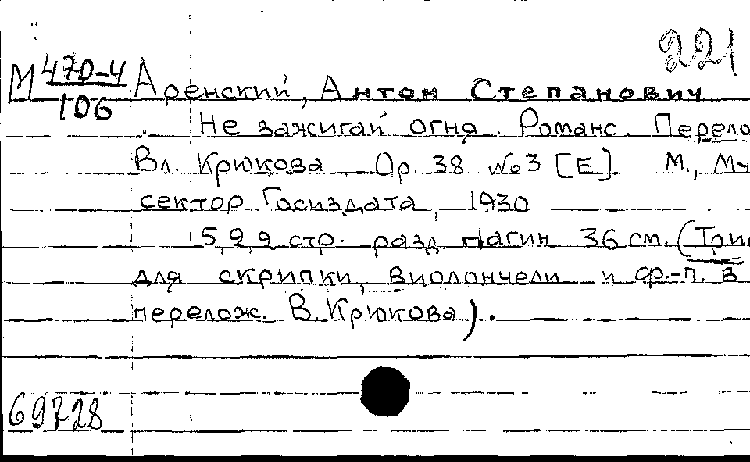 221
М 470-4 Аренский, Антон Степанович
106
Не зажигай огня. Романс. Перело
Вл. Крюкова. Op. 38 №3 [E]. М., Му
сектор Госиздата, 1930
5,2,2 стр. разд. пагин 36 см. (Трио
для скрипки, виолончели и ф.-п. в
перелож. В. Крюкова).
69728